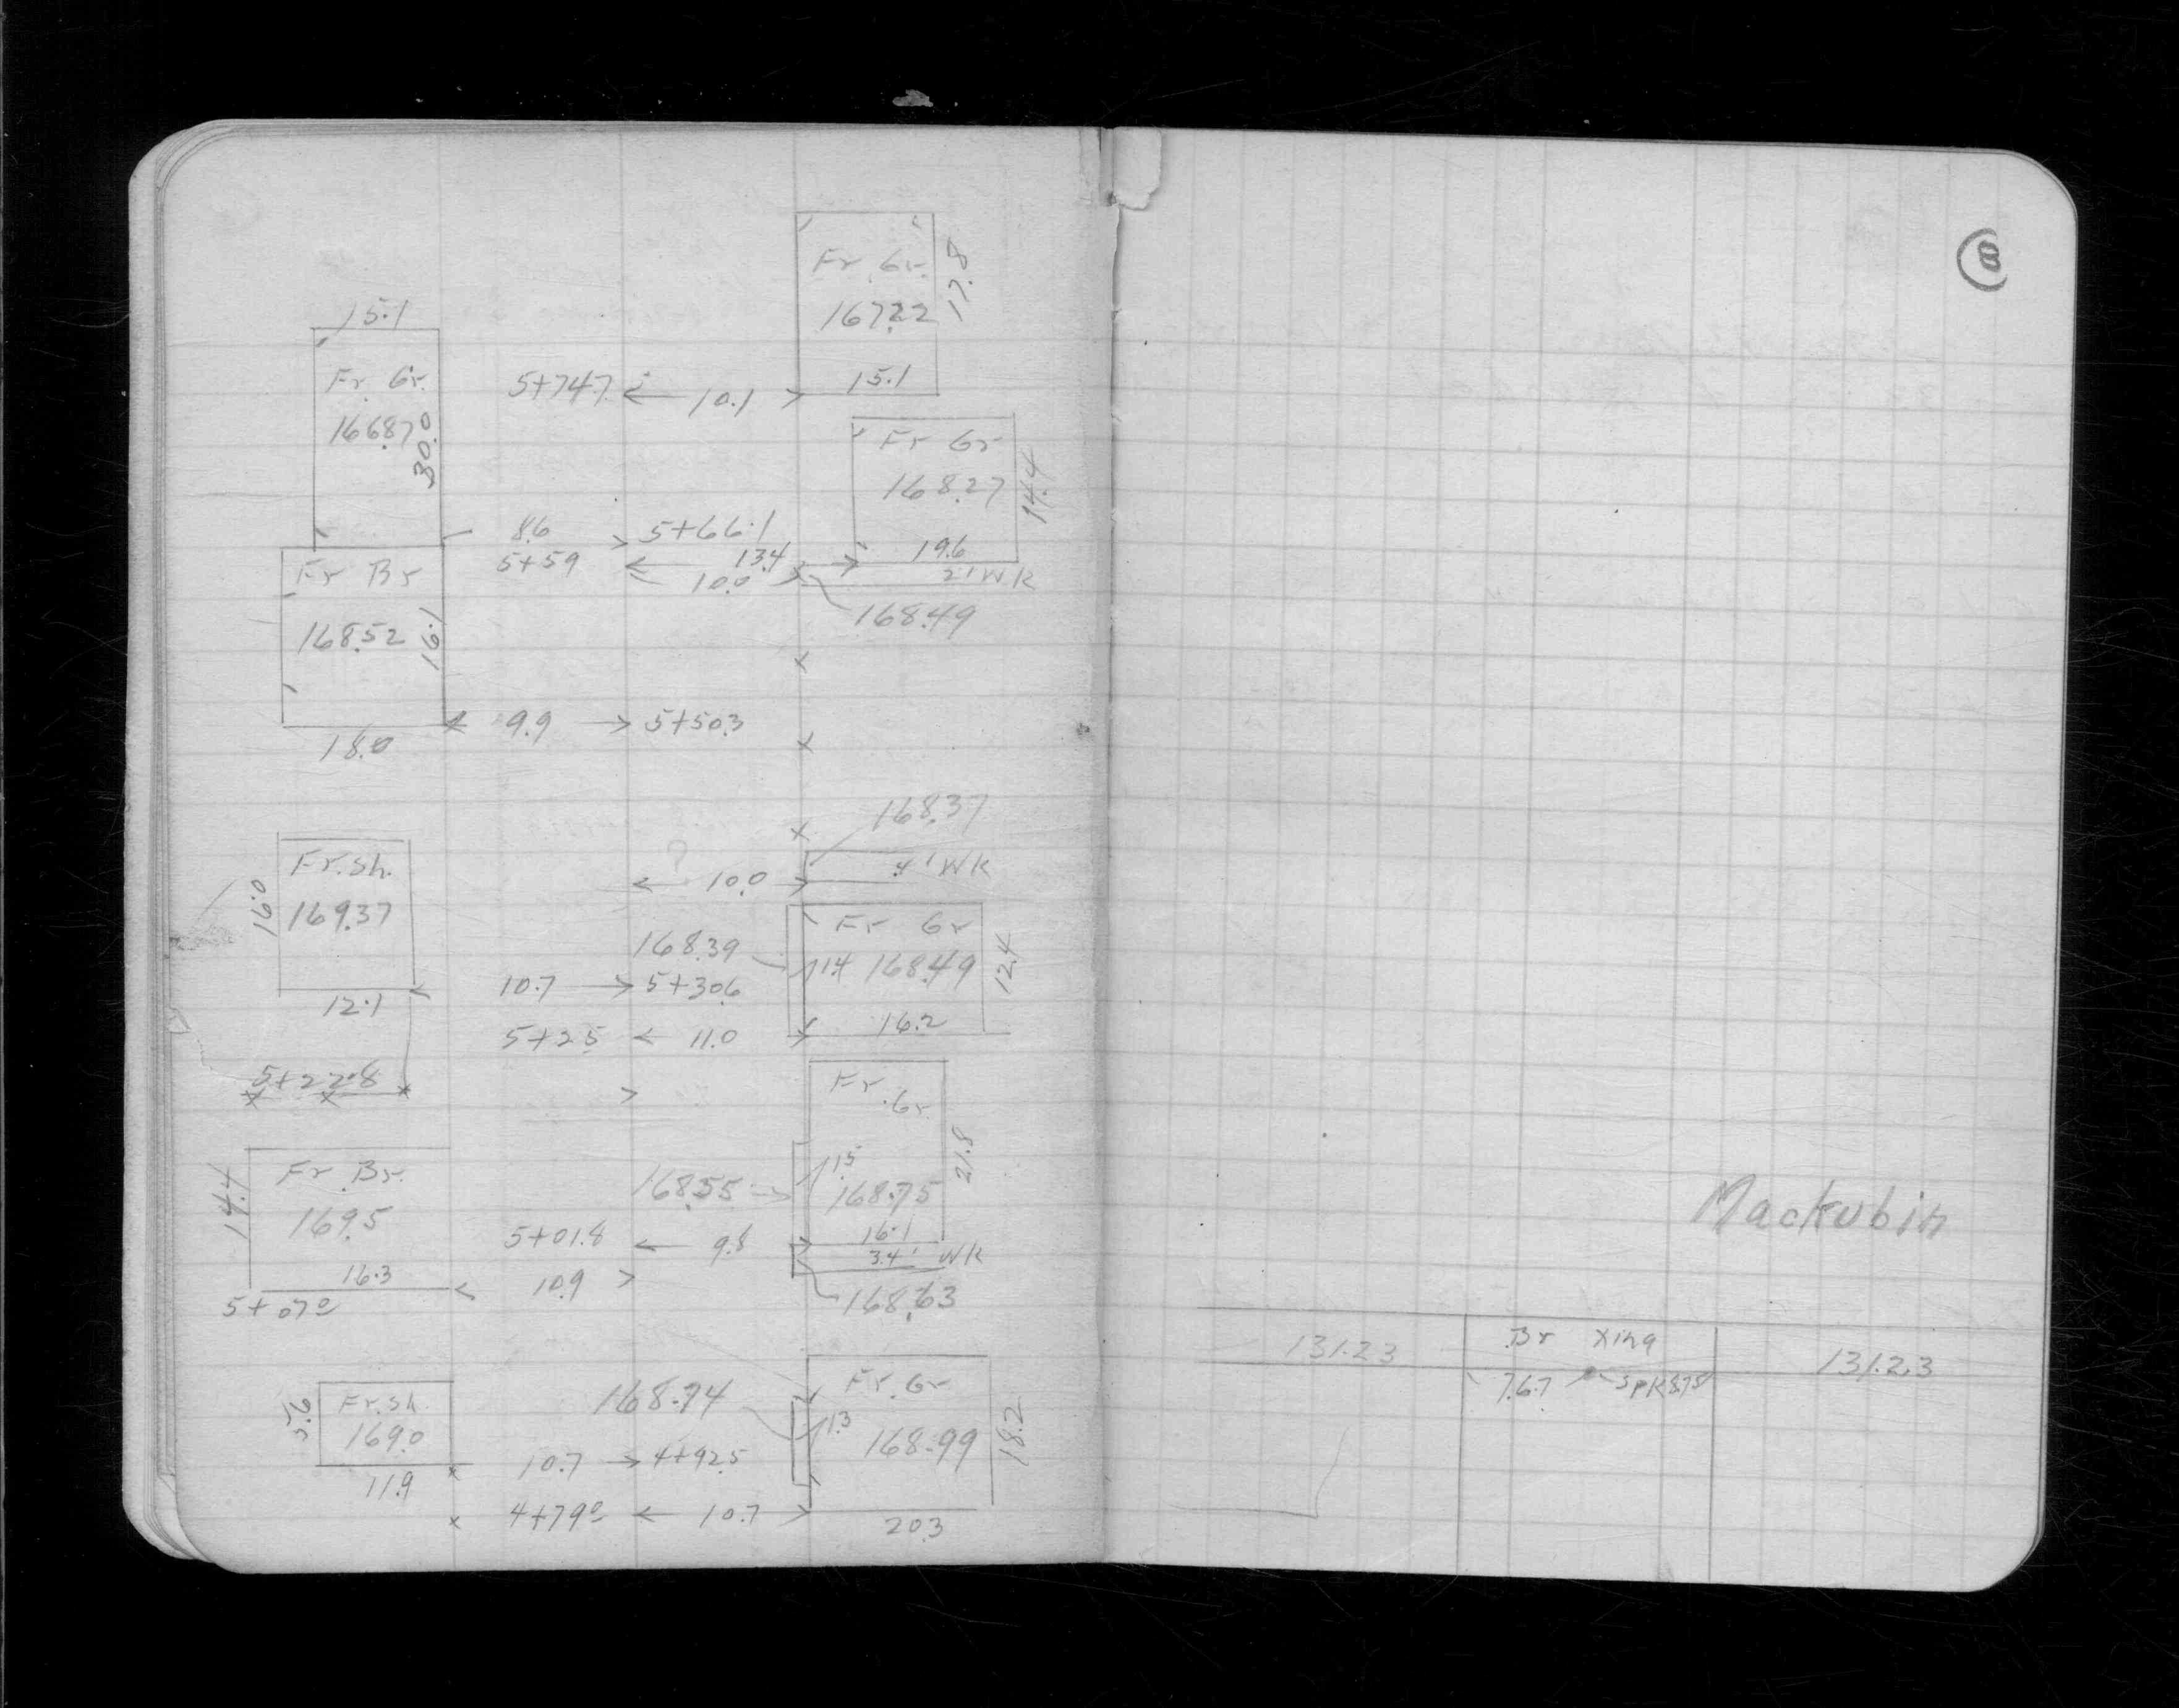 Fr. Gr.
167.22
17.8
15.1
15.1
Fr. Gr.
166.87
30.0
5+74.7
10.1
Fr Gr
168.27
14.4
19.6
8.6
5+66.1
5+59
13.4
10.0
2' WK
168.49
Fr Br
168.52
16.1
18.0
9.9
5+50.3
168.37
4' WK
10.0
Fr. Sh.
169.37
16.0
12.1
Fr Gr
168.39
1.4
168.49
12.4
10.7
5+30.6
16.2
5+25
11.0
5+22.8
Fr. Gr.
1.5
168.75
21.8
168.55
16.1
Fr. Br.
169.5
14.4
16.3
5+07.0
5+01.8
9.8
3.4' WK
10.9
168.63
Fr. Gr
168.74
1.3
168.99
18.2
Fr. Sh.
169.0
11.9
10.7
4+92.5
4+79.0
10.7
20.3
8
Mackubin
131.23
Br Xing
131.23
7.6.7